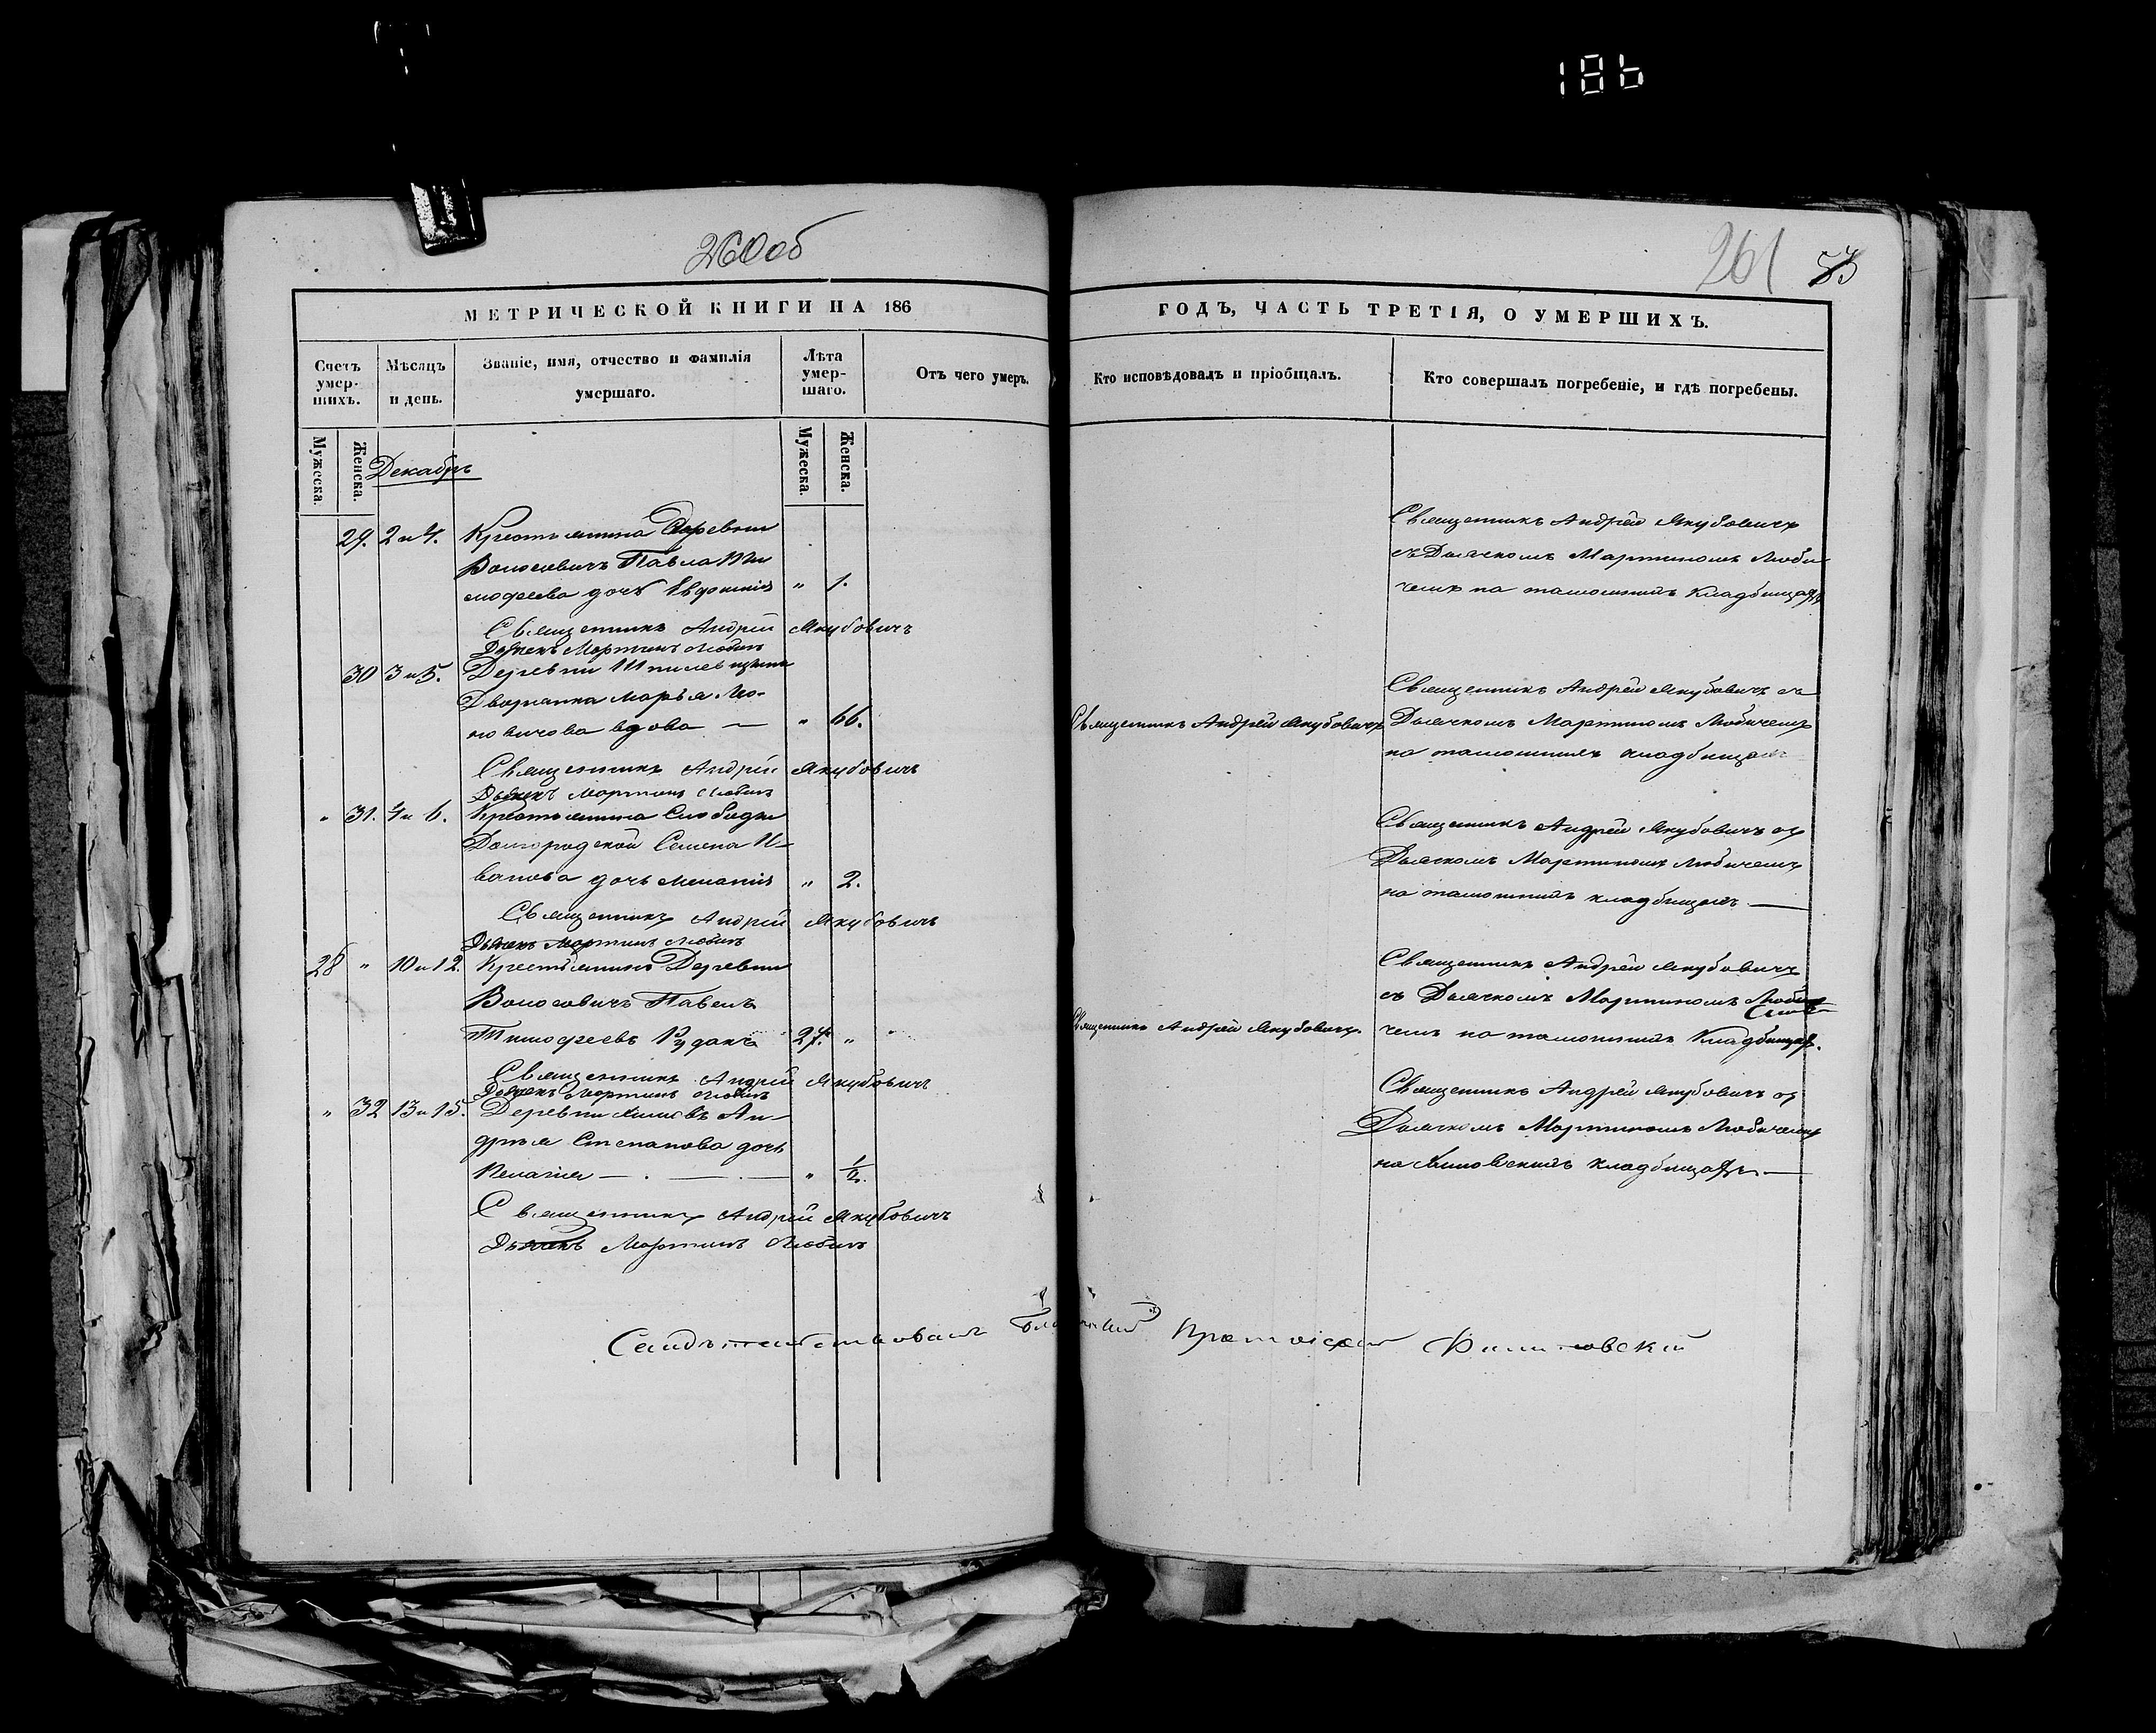 186
260об
261 53
МЕТРИЧЕСКОЙ КНИГИ НА 186
ГОДЪ, ЧАСТЬ ТРЕТІЯ, О УМЕРШИХЪ.
Счетъ умер-шихъ.
Мѣсяцъ и день.
Званіе, имя, отчество и фамилія умершаго.
Лѣта умер-шаго.
Отъ чего умеръ.
Кто исповѣдовалъ и пріобщалъ.
Кто совершалъ погребеніе, и гдѣ погребены.
Мужеска. Женска.
Мужеска. Женска.
Декабрь
29. 2 и 4. Крестьянина Деревни
Волосовичъ Павла Ти
мофеева дочь Евфимія " 1.
Священникъ Андрей Якубовичъ
съ Дьячкомъ Мартиномъ Люби
чемъ на тамошнихъ кладбищахъ
Священникъ Андрей Якубовичъ
Дьячекъ Мартинъ Любичъ
30 3 и 5. Деревни
Дворянка Марья
вдова — " 66.
Священникъ Андрей Якубовичъ
Священникъ Андрей Якубовичъ съ
Дьячкомъ Мартиномъ Любичемъ
на тамошнихъ кладбищахъ
Священникъ Андрей Якубовичъ
Дьячекъ Мартинъ Любичъ
" 31. 4 и 6. Крестьянина Слободки
Семена И-
ванова дочь Меланія " 2.
Священникъ Андрей Якубовичъ съ
Дьячкомъ Мартиномъ Любичемъ
на тамошнихъ кладбищахъ —
Священникъ Андрей Якубовичъ
Дьячекъ Мартинъ Любичъ
28 " 10 и 12. Крестьянинъ Деревни
Волосовичъ Павелъ
Тимофеевъ 27. "
Священникъ Андрей Якубовичъ
Священникъ Андрей Якубовичъ
съ Дьячкомъ Мартиномъ Люби
чемъ на тамошнихъ кладбищахъ.
Священникъ Андрей Якубовичъ
Дьячекъ Мартинъ Любичъ
" 32 13 и 15. Деревни Ан-
дрея Степанова дочь
Пелагія — . — . — " 1/2.
Священникъ Андрей Якубовичъ съ
Дьячкомъ Мартиномъ Любичемъ
на кладбищахъ —
Священникъ Андрей Якубовичъ
Дьячекъ Мартинъ Любичъ
Свидѣтельствовалъ Протоіерей